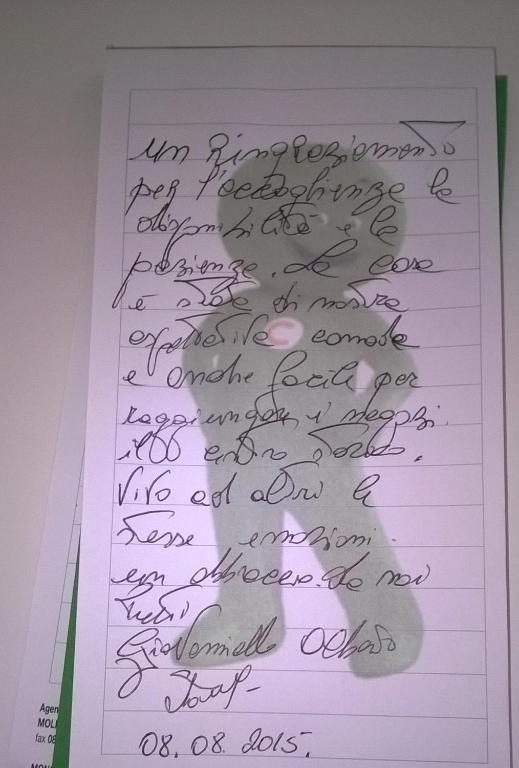 un Ringraziamento
per l'accoglienza la
disponibilità e la
pazienza. La casa
è stata di nostra
aspettativa comoda
e anche facile per
raggiungere i negozi.
il
Vivo ad altri le
stesse emozioni.
un abbraccio. da noi
tutti
Giovanniello
08.08.2015.
C
Agen
MOLI
fax 08
MON